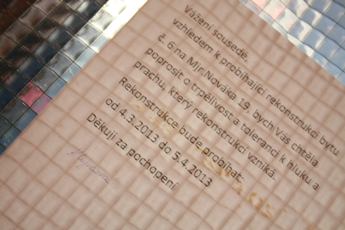 Vážení sousedé,
vzhledem k probíhající rekonstrukci bytu
č. 6 na Mir.Nováka 19, bych Vás chtěla
poprosit o trpělivost a toleranci k hluku a
prachu, který rekonstrukcí vzniká.
Rekonstrukce bude probíhat:
od 4.3.2013 do 5.4.2013
Děkuji za pochopení